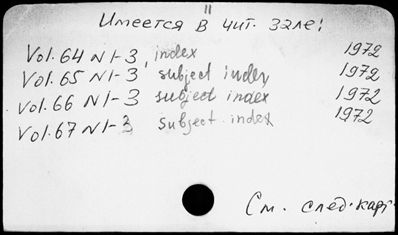 II
Имеется в чит. зале:
Vol. 64 N 1-3, index 1972
Vol. 65 N 1-3 subject index 1972
Vol. 66 N 1-3 subject index 1972
Vol. 67 N 1-3 subject index 1972
См. след. карт.